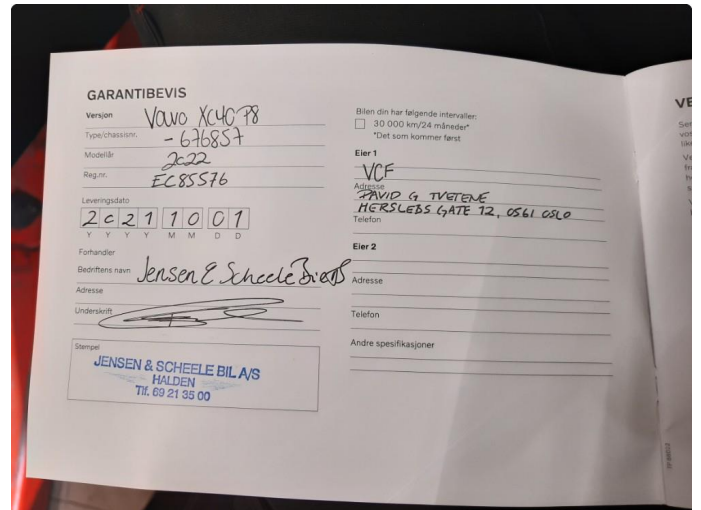 GARANTIBEVIS
Versjon Volvo XC40 P8
Type/chassisnr. - 676857
Modellår 2022
Reg.nr. EC85576
Leveringsdato
2021 10 01
Y Y Y Y M M D D
Forhandler
Bedriftens navn Jensen & Scheele Bil A/S
Adresse
Underskrift
Stempel
JENSEN & SCHEELE BIL A/S
HALDEN
Tlf. 69 21 35 00
Bilen din har følgende intervaller:
30 000 km/24 måneder*
*Det som kommer først
Eier 1
VCF
Adresse
DAVID G TVETENE
HERSLEBS GATE 12, 0561 OSLO
Telefon
Eier 2
Adresse
Telefon
Andre spesifikasjoner
VE